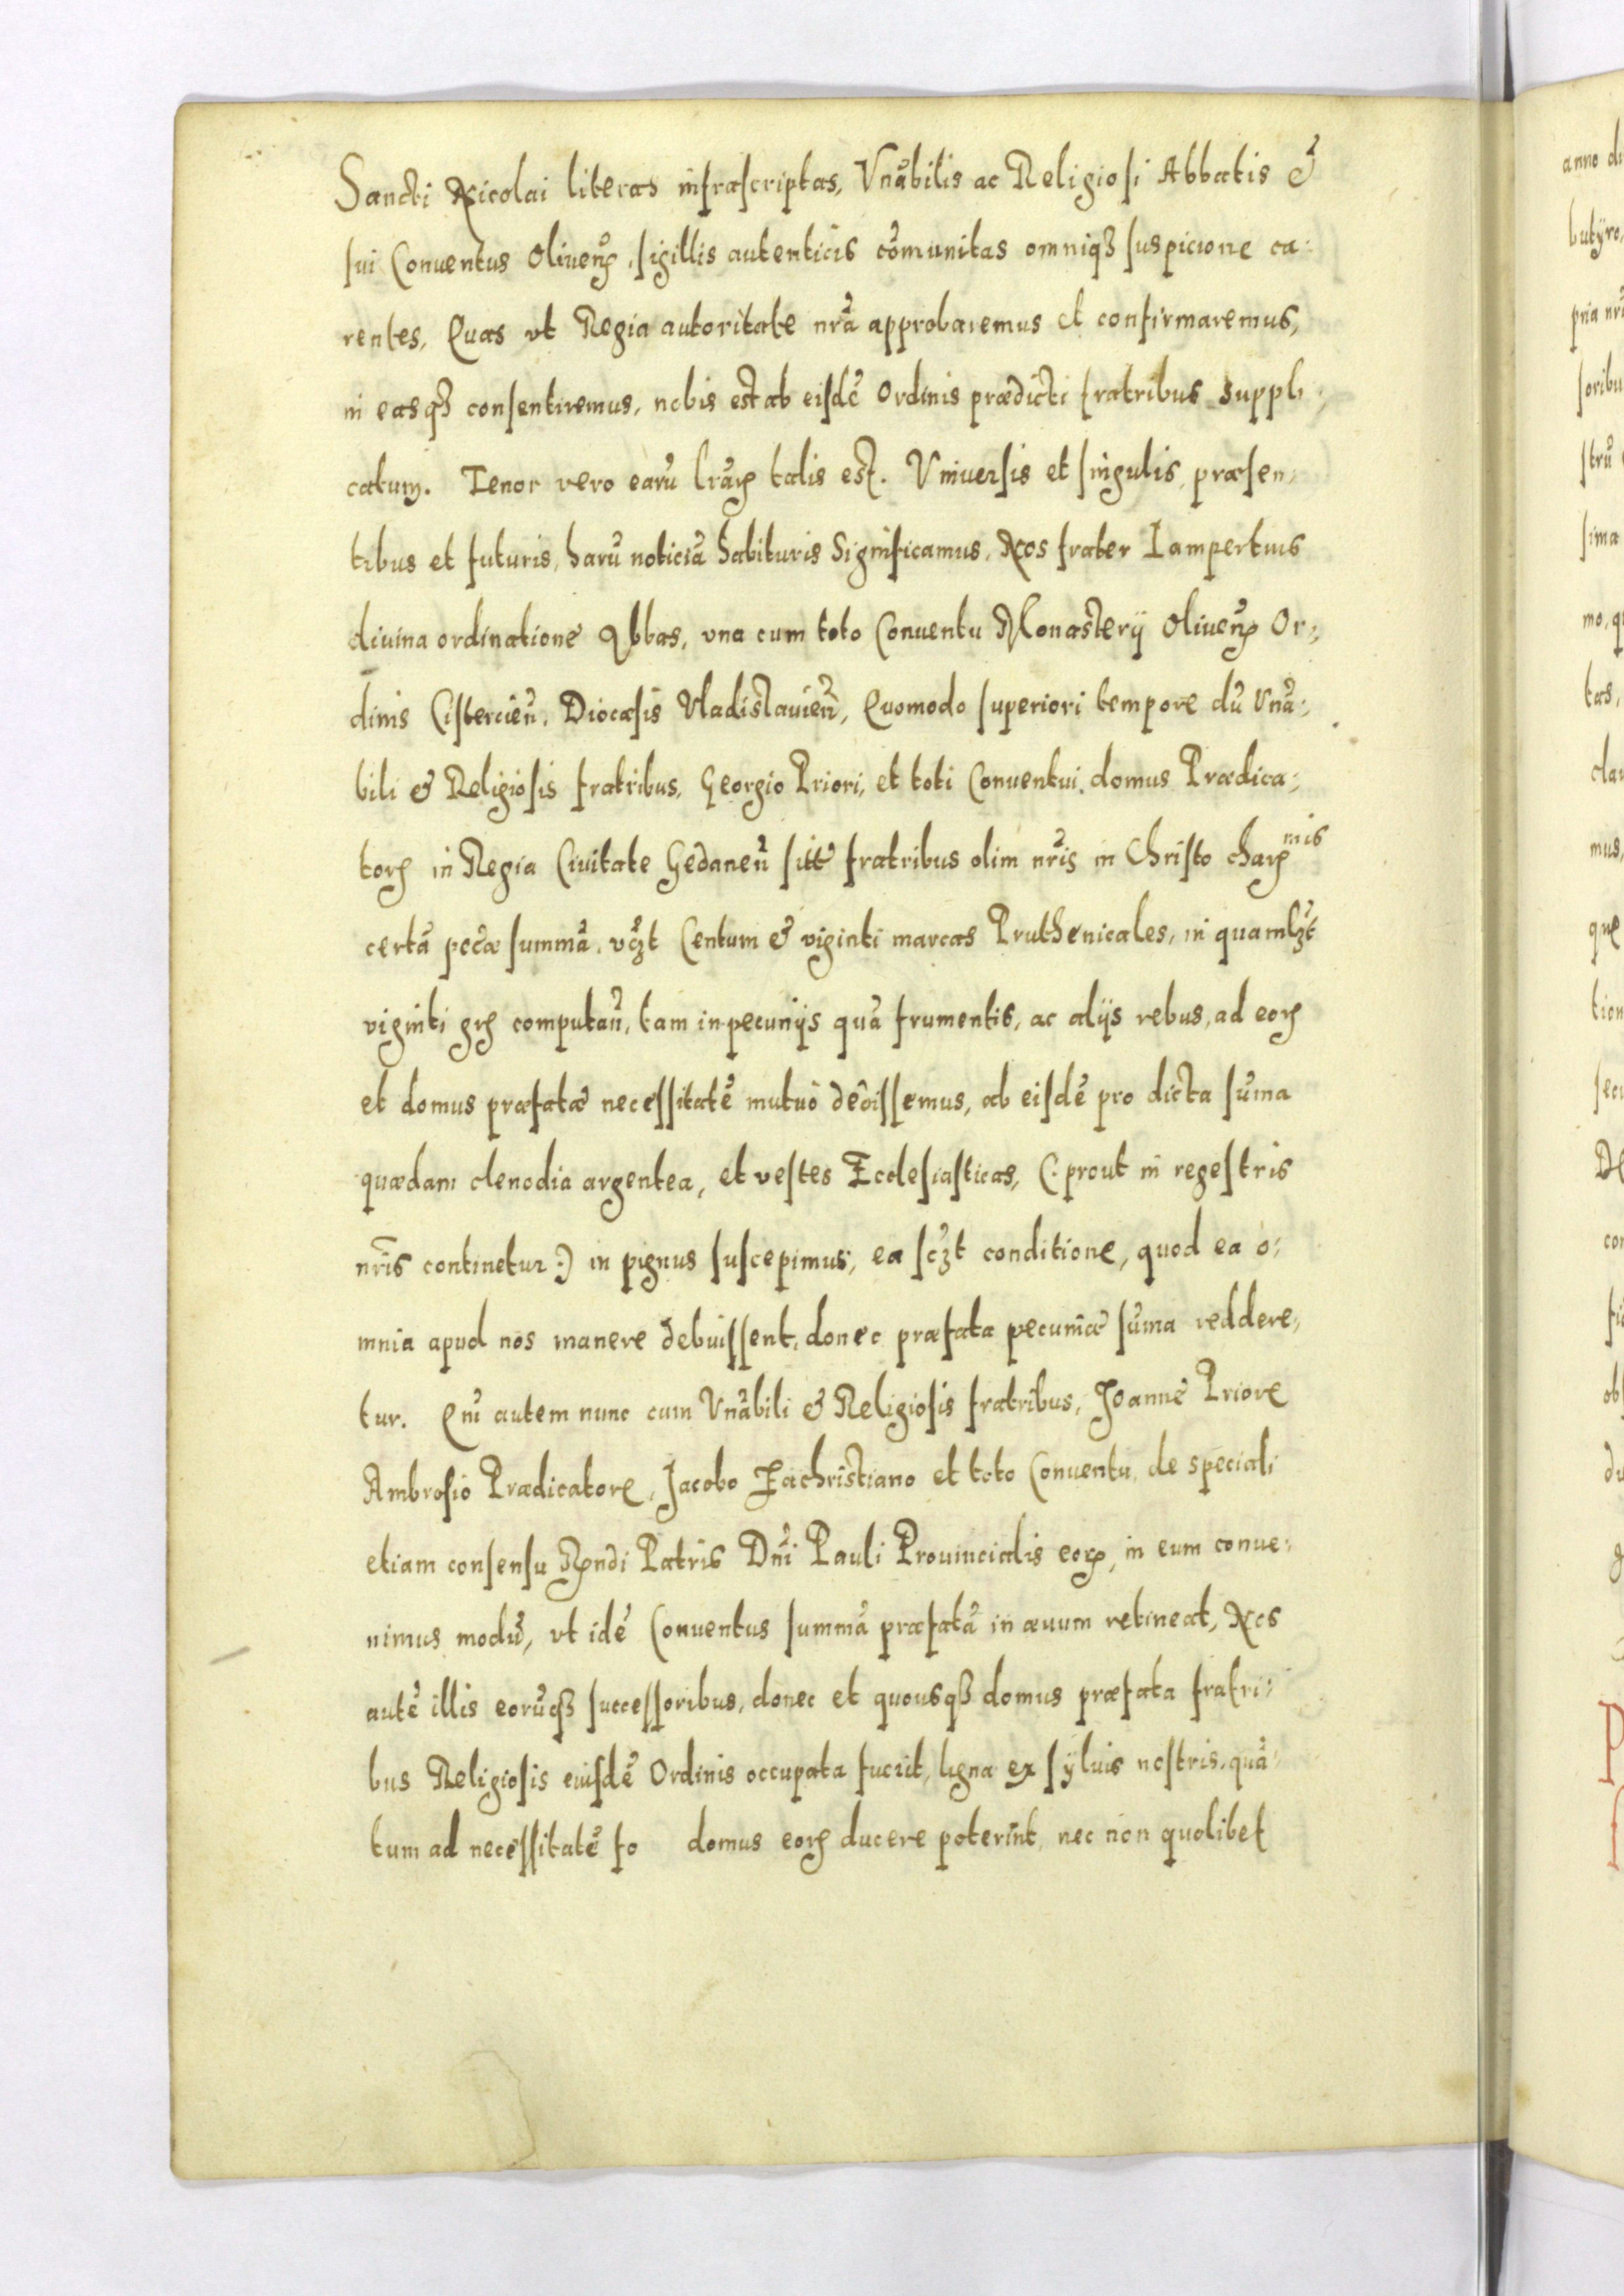 Sancti Nicolai literas infrascriptas, Vnãbilis ac Religiosi Abbatis &
sui Conuentus Oliueñ, sigillis autenticis cõmunitas omniqꝫ suspicione ca:
rentes, Quas vt Regia autoritate nrã approbaremus et confirmaremus,
in easqꝫ consentiremus, nobis est ab eisdẽ Ordinis prædicti fratribus suppli:
catum. Tenor vero earũ lrãꝝ talis est. Vniuersis et singulis, præsen:
tibus et futuris, harũ noticiã habituris Significamus, Nos frater Lampertus
diuina ordinatione Abbas, vna cum toto Conuentu Monasterij Oliueñ Or:
dinis Cistercieñ. Diocæsis Vladislauieñ, Quomodo superiori tempore dũ Vnã:
bili & Religiosis fratribus, Georgio Priori, et toti Conuentui domus Prædica:
toꝝ in Regia Ciuitate Gedaneñ sitæ fratribus olim nr̃is in Christo chaꝝmis
certã pecc̃æ summã, vꝫt Centum & viginti marcas Pruthenicales, in quamlꝫt
viginti grꝭ computañ, tam in pecunijs quã frumentis, ac alijs rebus, ad eoꝝ
et domus præfatæ necessitatẽ mutuò dẽdissemus, ab eisdẽ pro dicta sũma
quædam clenodia argentea, et vestes Ecclesiasticas, (: prout in regestris
nr̃is continetur :) in pignus suscepimus, ea scꝫt conditione, quod ea o:
mnia apud nos manere debuissent, donec præfata pecuniæ sũma reddere:
tur. Qm̃ autem nunc cum Vnãbili & Religiosis fratribus, Joannẽ Priore
Ambrosio Prædicatore, Jacobo Pachristiano et toto Conuentu, de speciali
etiam consensu Rṇdi Patris Dñi Pauli Prouincialis eoꝝ, in eum conue:
nimus modũ, vt idẽ Conuentus summã præfatã in æuum retineat, Nos
autẽ illis eorũqꝫ successoribus, donec et quousqꝫ domus præfata fratri:
bus Religiosis eiusdẽ Ordinis occupata fuerit, ligna ex syluis nostris, quã:
tum ad necessitatẽ fo domus eoꝝ ducere poterint, nec non quolibet